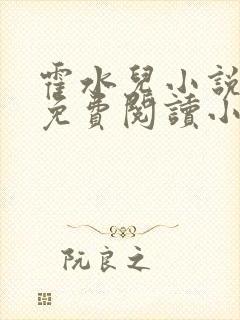 霍水兒小說
免費閱讀小
阮良之